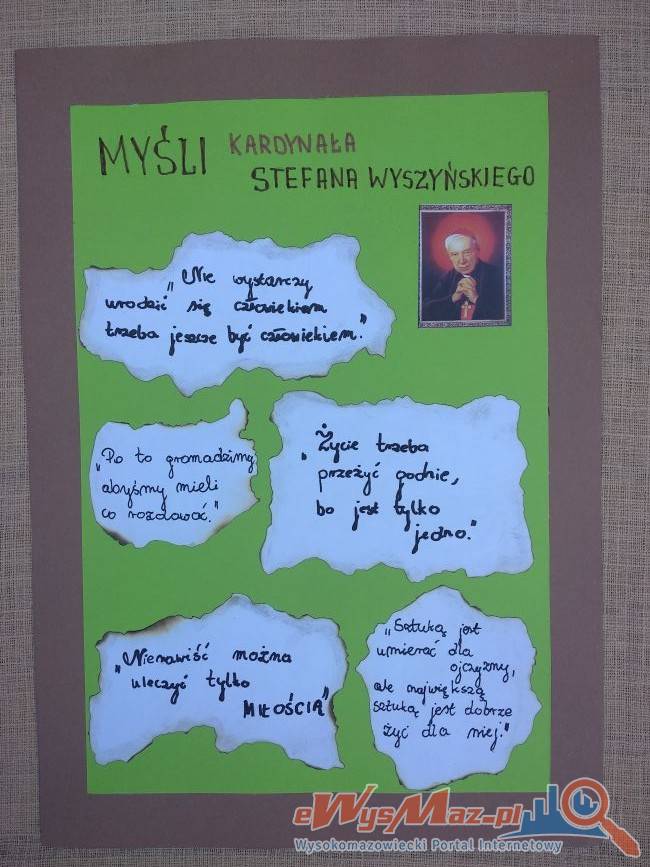 MYŚLI KARDYNAŁA
STEFANA WYSZYŃSKIEGO
„Nie wystarczy
urodzić się człowiekiem
trzeba jeszcze być człowiekiem."
„Po to gromadzimy,
abyśmy mieli
co rozdawać."
„Życie trzeba
przeżyć godnie,
bo jest tylko
jedno."
„Nienawiść można
uleczyć tylko
MIŁOŚCIĄ"
„Sztuką jest
umierać dla
ojczyzny,
ale największą
sztuką jest dobrze
żyć dla niej."
eWysMaz.pl
Wysokomazowiecki Portal Internetowy